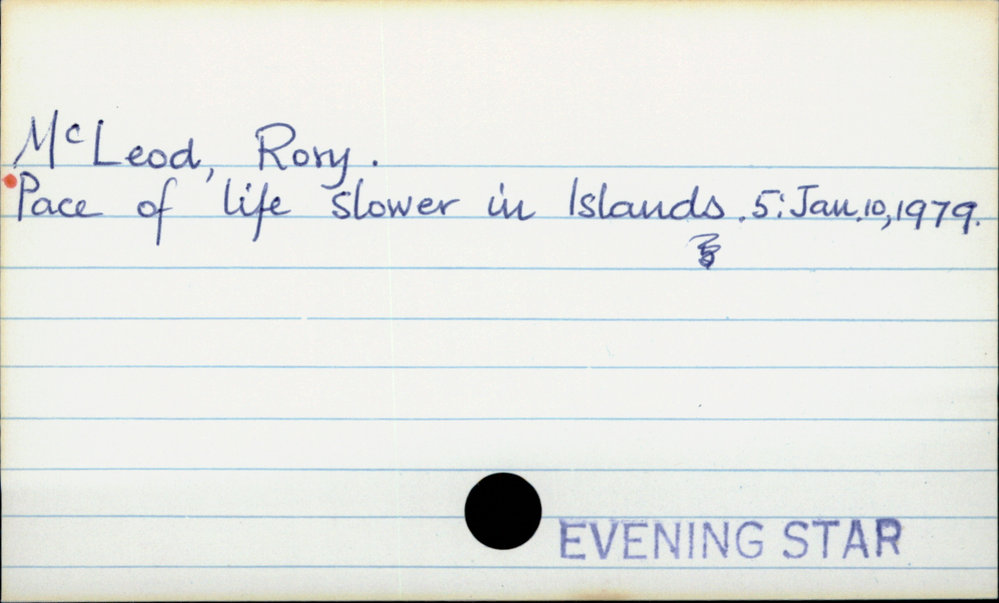 McLeod, Rory.
Pace of life slower in Islands. 5: Jan. 10, 1979.
EVENING STAR